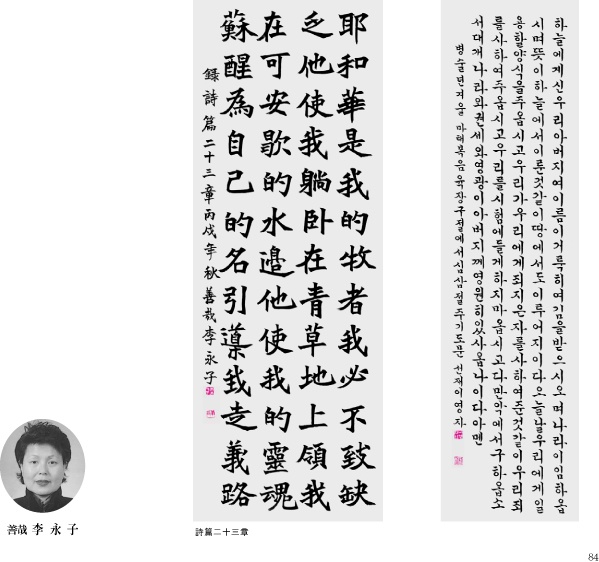 하늘에계신우리아버지여이름이거룩히여김을받으시오며나라이임하옵
시며뜻이하늘에서이룬것같이땅에서도이루어지이다오늘날우리에게일
용할양식을주옵시고우리가우리에게죄지은자를사하여준것같이우리죄
를사하여주옵시고우리를시험에들게하지마옵시고다만악에서구하옵소
서대개나라와권세와영광이아버지께영원히있사옵나이다아멘
병술년 마태복음육장구절에서십삼절주기도문 선재이영자
耶和華是我的牧者我必不致缺
乏他使我躺卧在青草地上領我
在可安歇的水邉他使我的靈魂
蘇醒為自己的名引導我走義路
錄詩篇二十三章丙戌年秋善哉李永子
善哉 李永子
詩篇二十三章
84